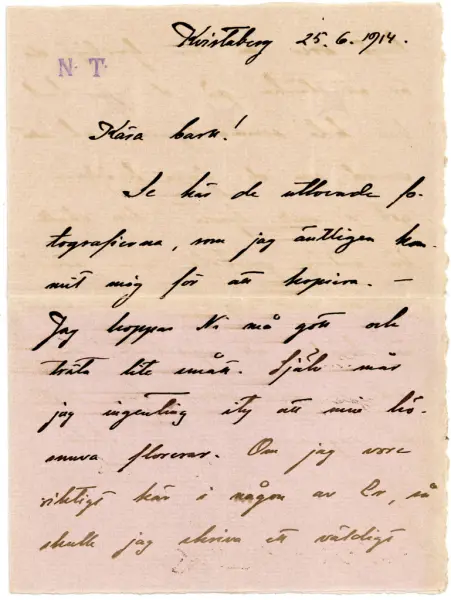 Kvistaberg 25.6.1914.
N. T.
Kära barn!
Se här de utlovade fo-
tografierna, som jag äntligen kom-
mit mig för att kopiera. —
Jag hoppas Ni må gott och
träta lite smått. Själv mår
jag ingenting ity att min hö-
snuva florerar. Om jag vore
riktigt kär i någon av Er, så
skulle jag skriva ett väldigt